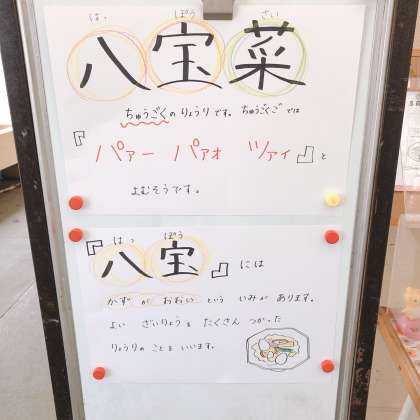 はっ ぽう さい
八宝菜
ちゅうごくのりょうりです。ちゅうごくごでは
『パァー パァオ ツァイ』と
よむそうです。
はっ ぽう
『八宝』には
かずがおおいという いみが あります。
よい ざいりょうを たくさん つかった
りょうりのことをいいます。